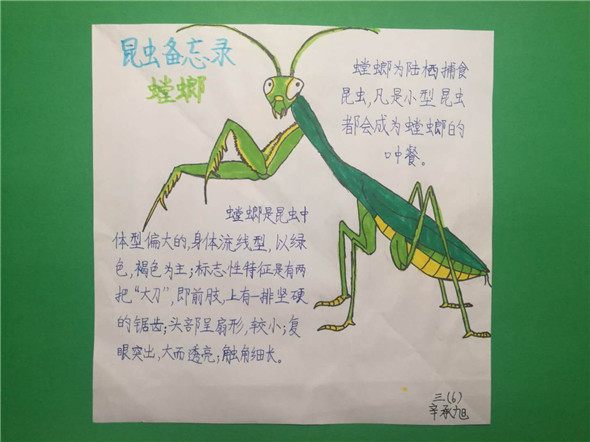 昆虫备忘录
螳螂
螳螂为陆栖捕食
昆虫,凡是小型昆虫
都会成为螳螂的
叶餐。
螳螂是昆虫中
体型偏大的,身体流线型,以绿
色,褐色为主;标志性特征是有两
把“大刀”,即前肢,上有一排坚硬
的锯齿;头部呈扇形,较小;复
眼突出,大而透亮;触角细长。
三(6)
辛承旭